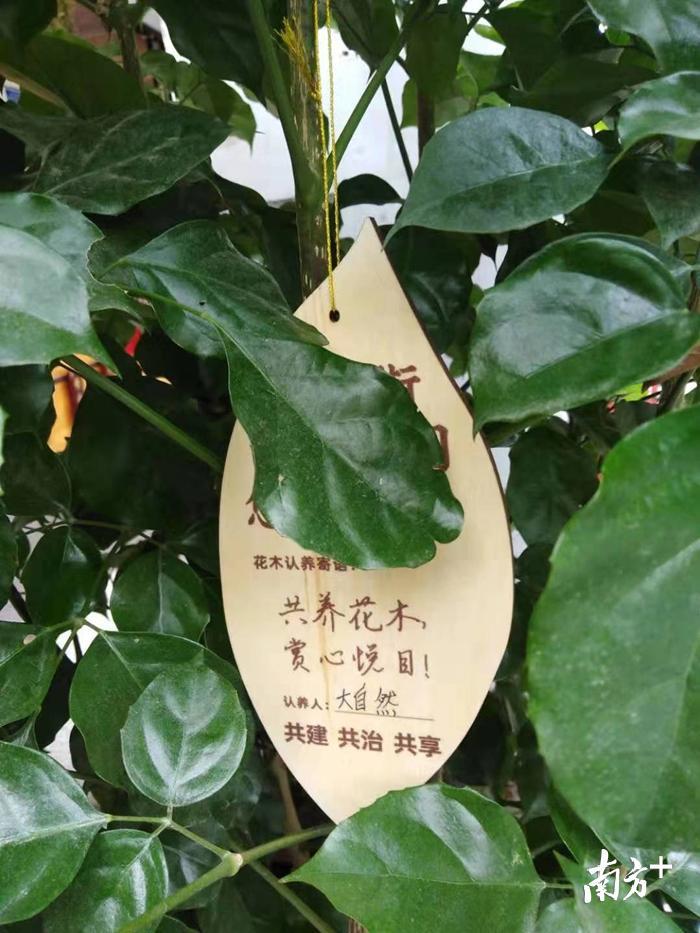 街
花木认养寄语:
共养花木,
赏心悦目!
认养人:大自然
共建 共治 共享
南方+